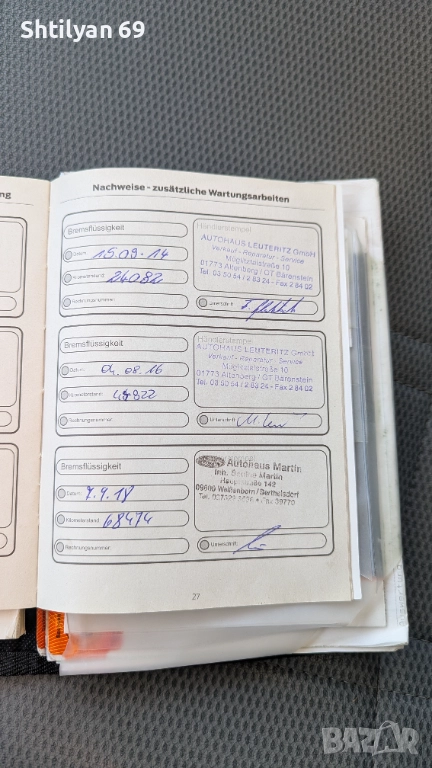 Shtilyan 69
ng
Nachweise - zusätzliche Wartungsarbeiten
Bremsflüssigkeit
Datum: 15.09.14
Kilometerstand: 24082
Rechnungsnummer:
Händlerstempel
AUTOHAUS LEUTERITZ GmbH
Verkauf - Reparatur - Service
Müglitztalstraße 10
01773 Altenberg / OT Bärenstein
Tel. 03 50 54 / 2 83 24 - Fax 2 84 02
Unterschrift:
Bremsflüssigkeit
Datum: 04.08.16
Kilometerstand: 48822
Rechnungsnummer:
Händlerstempel
AUTOHAUS LEUTERITZ GmbH
Verkauf - Reparatur - Service
Müglitztalstraße 10
01773 Altenberg / OT Bärenstein
Tel. 03 50 54 / 2 83 24 - Fax 2 84 02
Unterschrift:
Bremsflüssigkeit
Datum: 7.9.18
Kilometerstand: 68474
Rechnungsnummer:
Autohaus Martin
Inh. Martin
Hauptstraße 148
Weißenborn / Berthelsdorf
Tel.
Unterschrift:
27
BAZAR